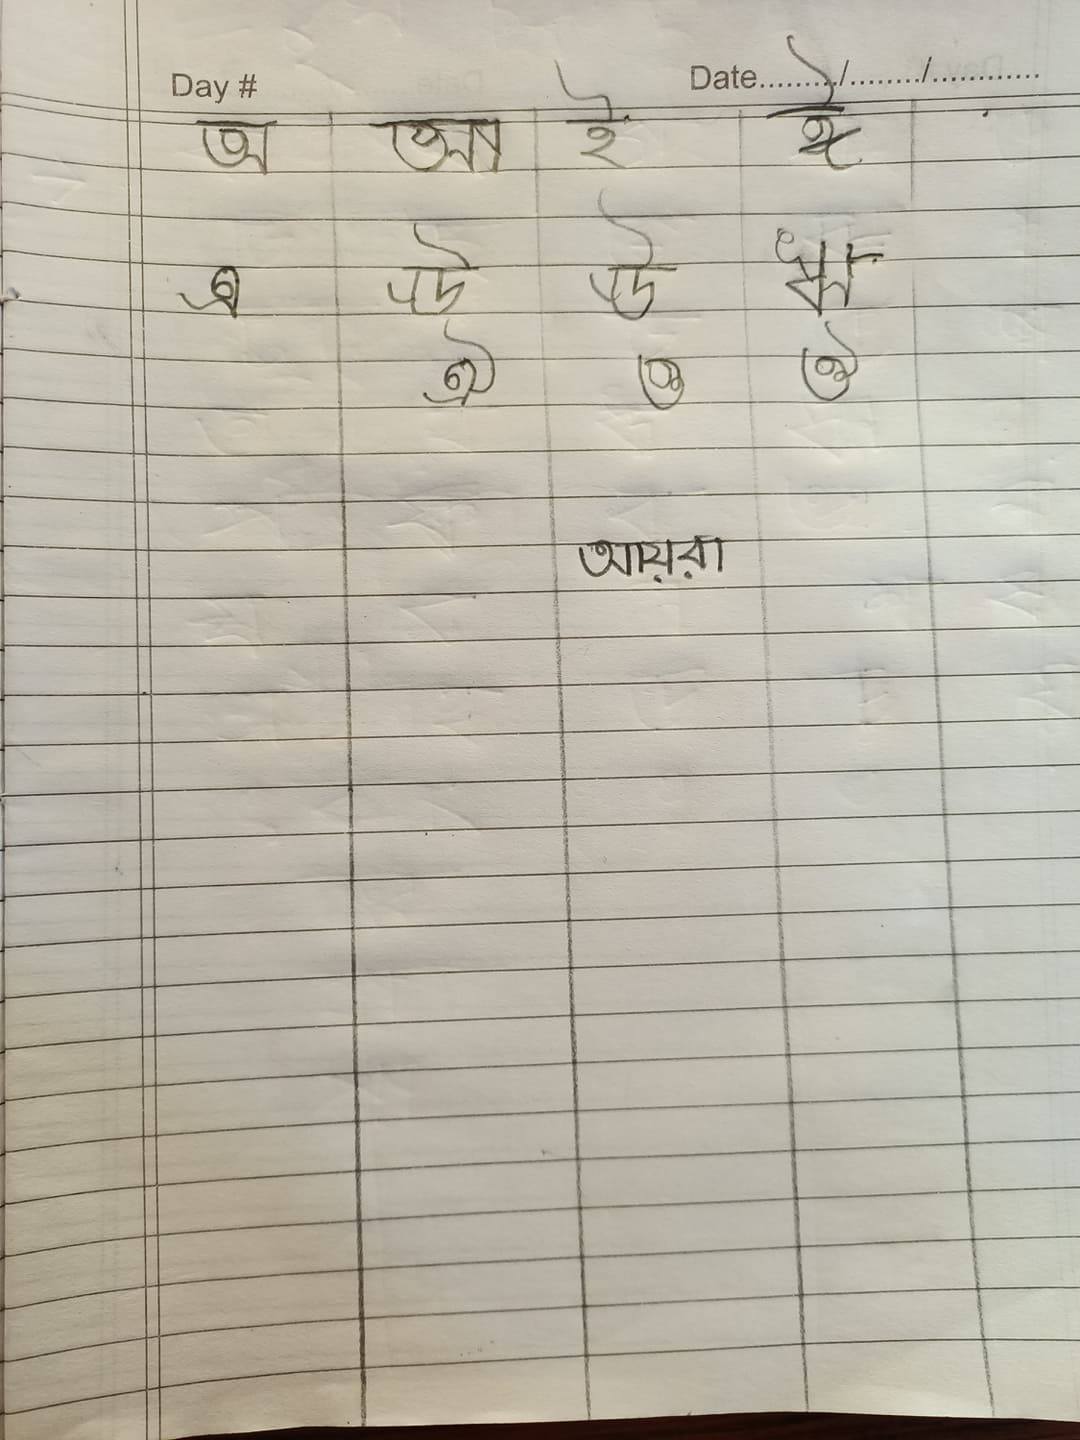 Day #
Date........./......../............
অ আ ই ঈ
এ উ উ ঋ
ঐ ও ঔ
আয়রা